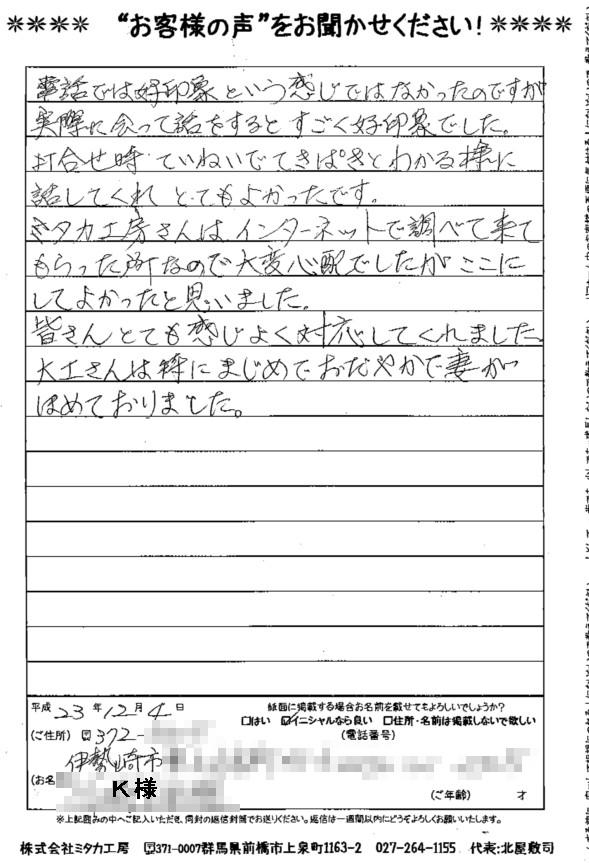 **** “お客様の声”をお聞かせください! ****
電話では好印象という感じではなかったのですが
実際に会って話をするとすごく好印象でした。
打合せ時ていねいでてきぱきとわかる様に
話してくれとてもよかったです。
ミタカ工房さんはインターネットで調べて来て
もらった所なので大変心配でしたがここに
してよかったと思いました。
皆さんとても感じよく対応してくれました
大工さんは特にまじめでおだやかで妻が
ほめておりました。
平成 23 年 12 月 4 日
紙面に掲載する場合お名前を載せてもよろしいでしょうか?
□はい ☑イニシャルなら良い □住所・名前は掲載しないで欲しい
(ご住所) 〒372- (電話番号)
伊勢崎市
(お名 K様
(ご年齢) 才
※上記囲みの中へご記入いただき、同封の返信封筒でお送りください。返信は一週間以内にどうぞよろしくお願いいたします。
株式会社ミタカ工房 〒371-0007群馬県前橋市上泉町1163-2 027-264-1155 代表:北屋敷司